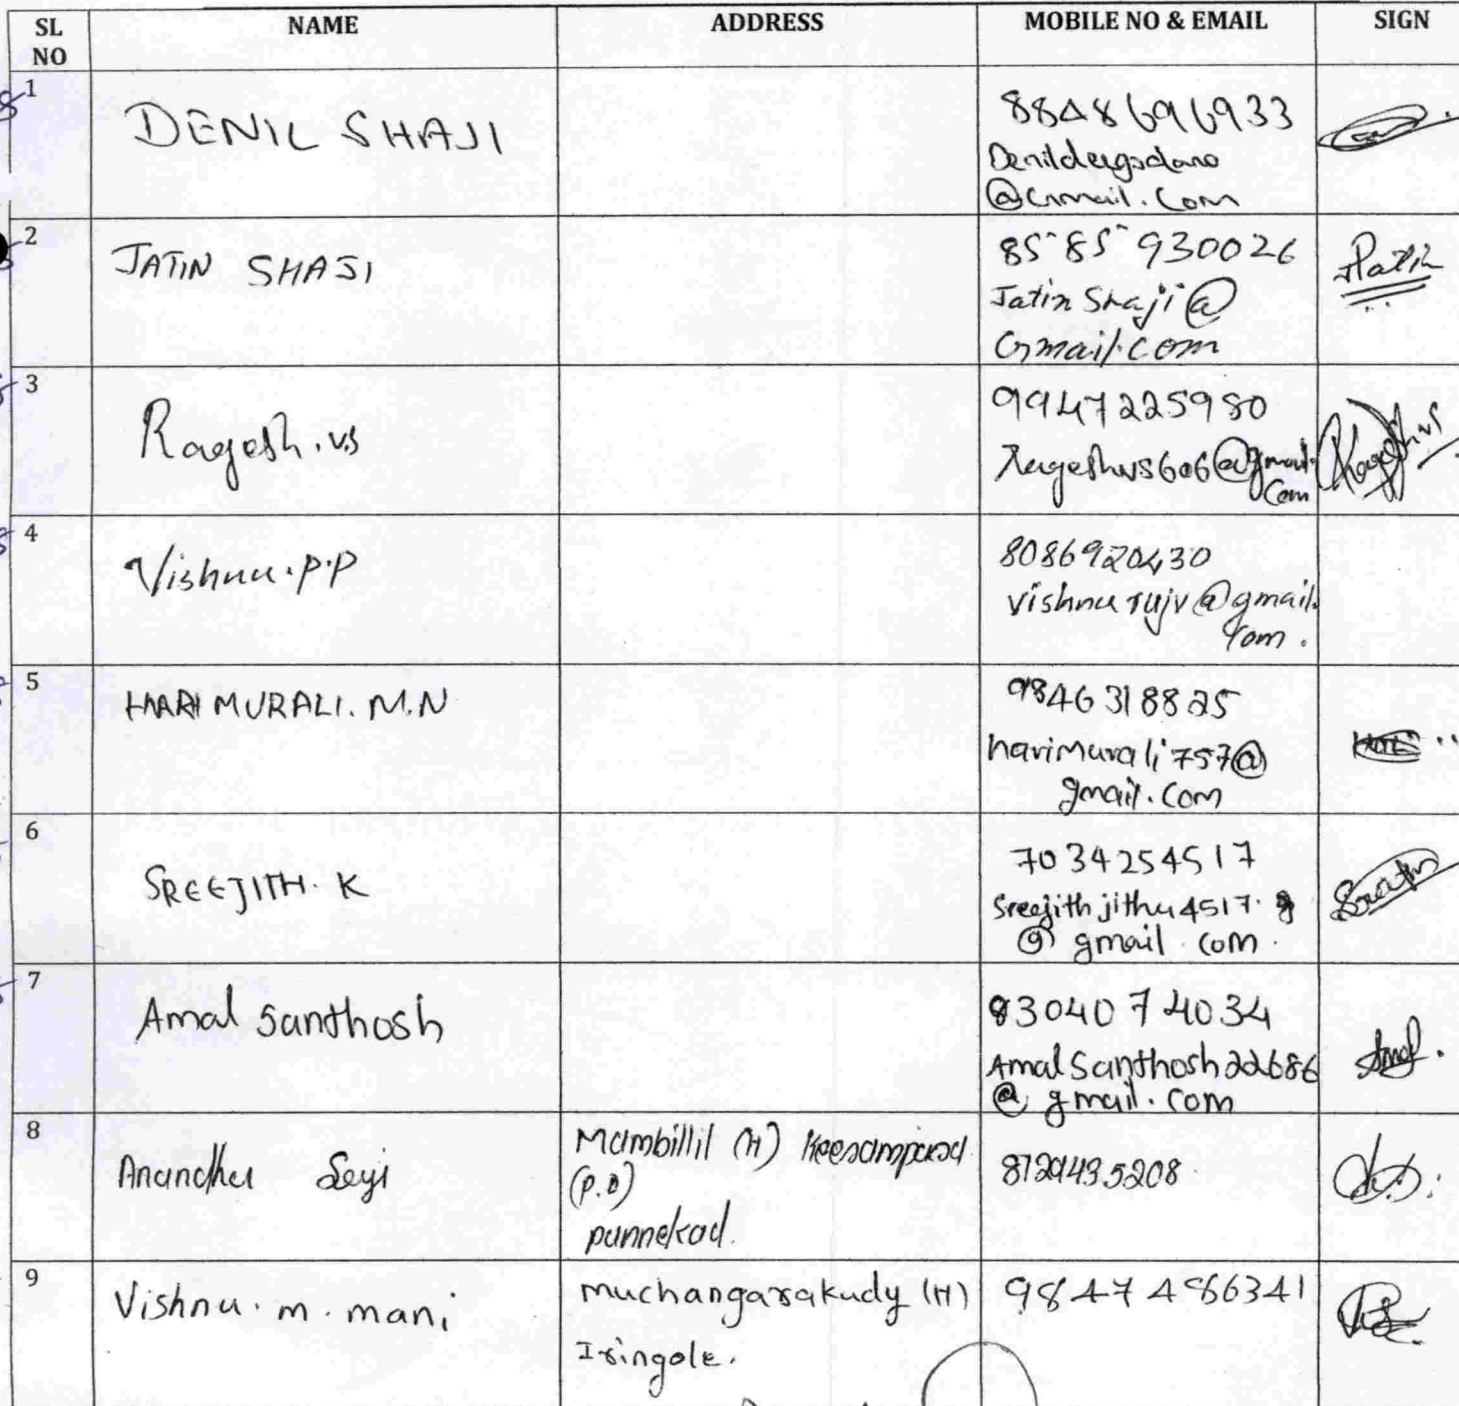 SL NO NAME ADDRESS MOBILE NO & EMAIL SIGN
1 DENIL SHAJI 8848696933
@Gmail.com
2 JATIN SHAJI 8585930026
Jatin Shaji@
Gmail.com
3 Ragesh.v.s 9947225980
Rageshvs606@gmail.
com
4 Vishnu.p.p 8086920430
vishnurujv@gmail.
com.
5 HARI MURALI. M.N 9846318825
harimurali757@
gmail.com
6 SREEJITH. K 7034254517
Sreejith jithu4517.
@ gmail.com.
7 Amal Santhosh 8304074034
AmalSanthosh22686
@ gmail.com
8 Anandhu Saji Mambillil (H) Keerampara 8129435208
(P.O)
punnekad.
9 Vishnu.m.mani muchangarakudy (H) 9847486341
Iringole.